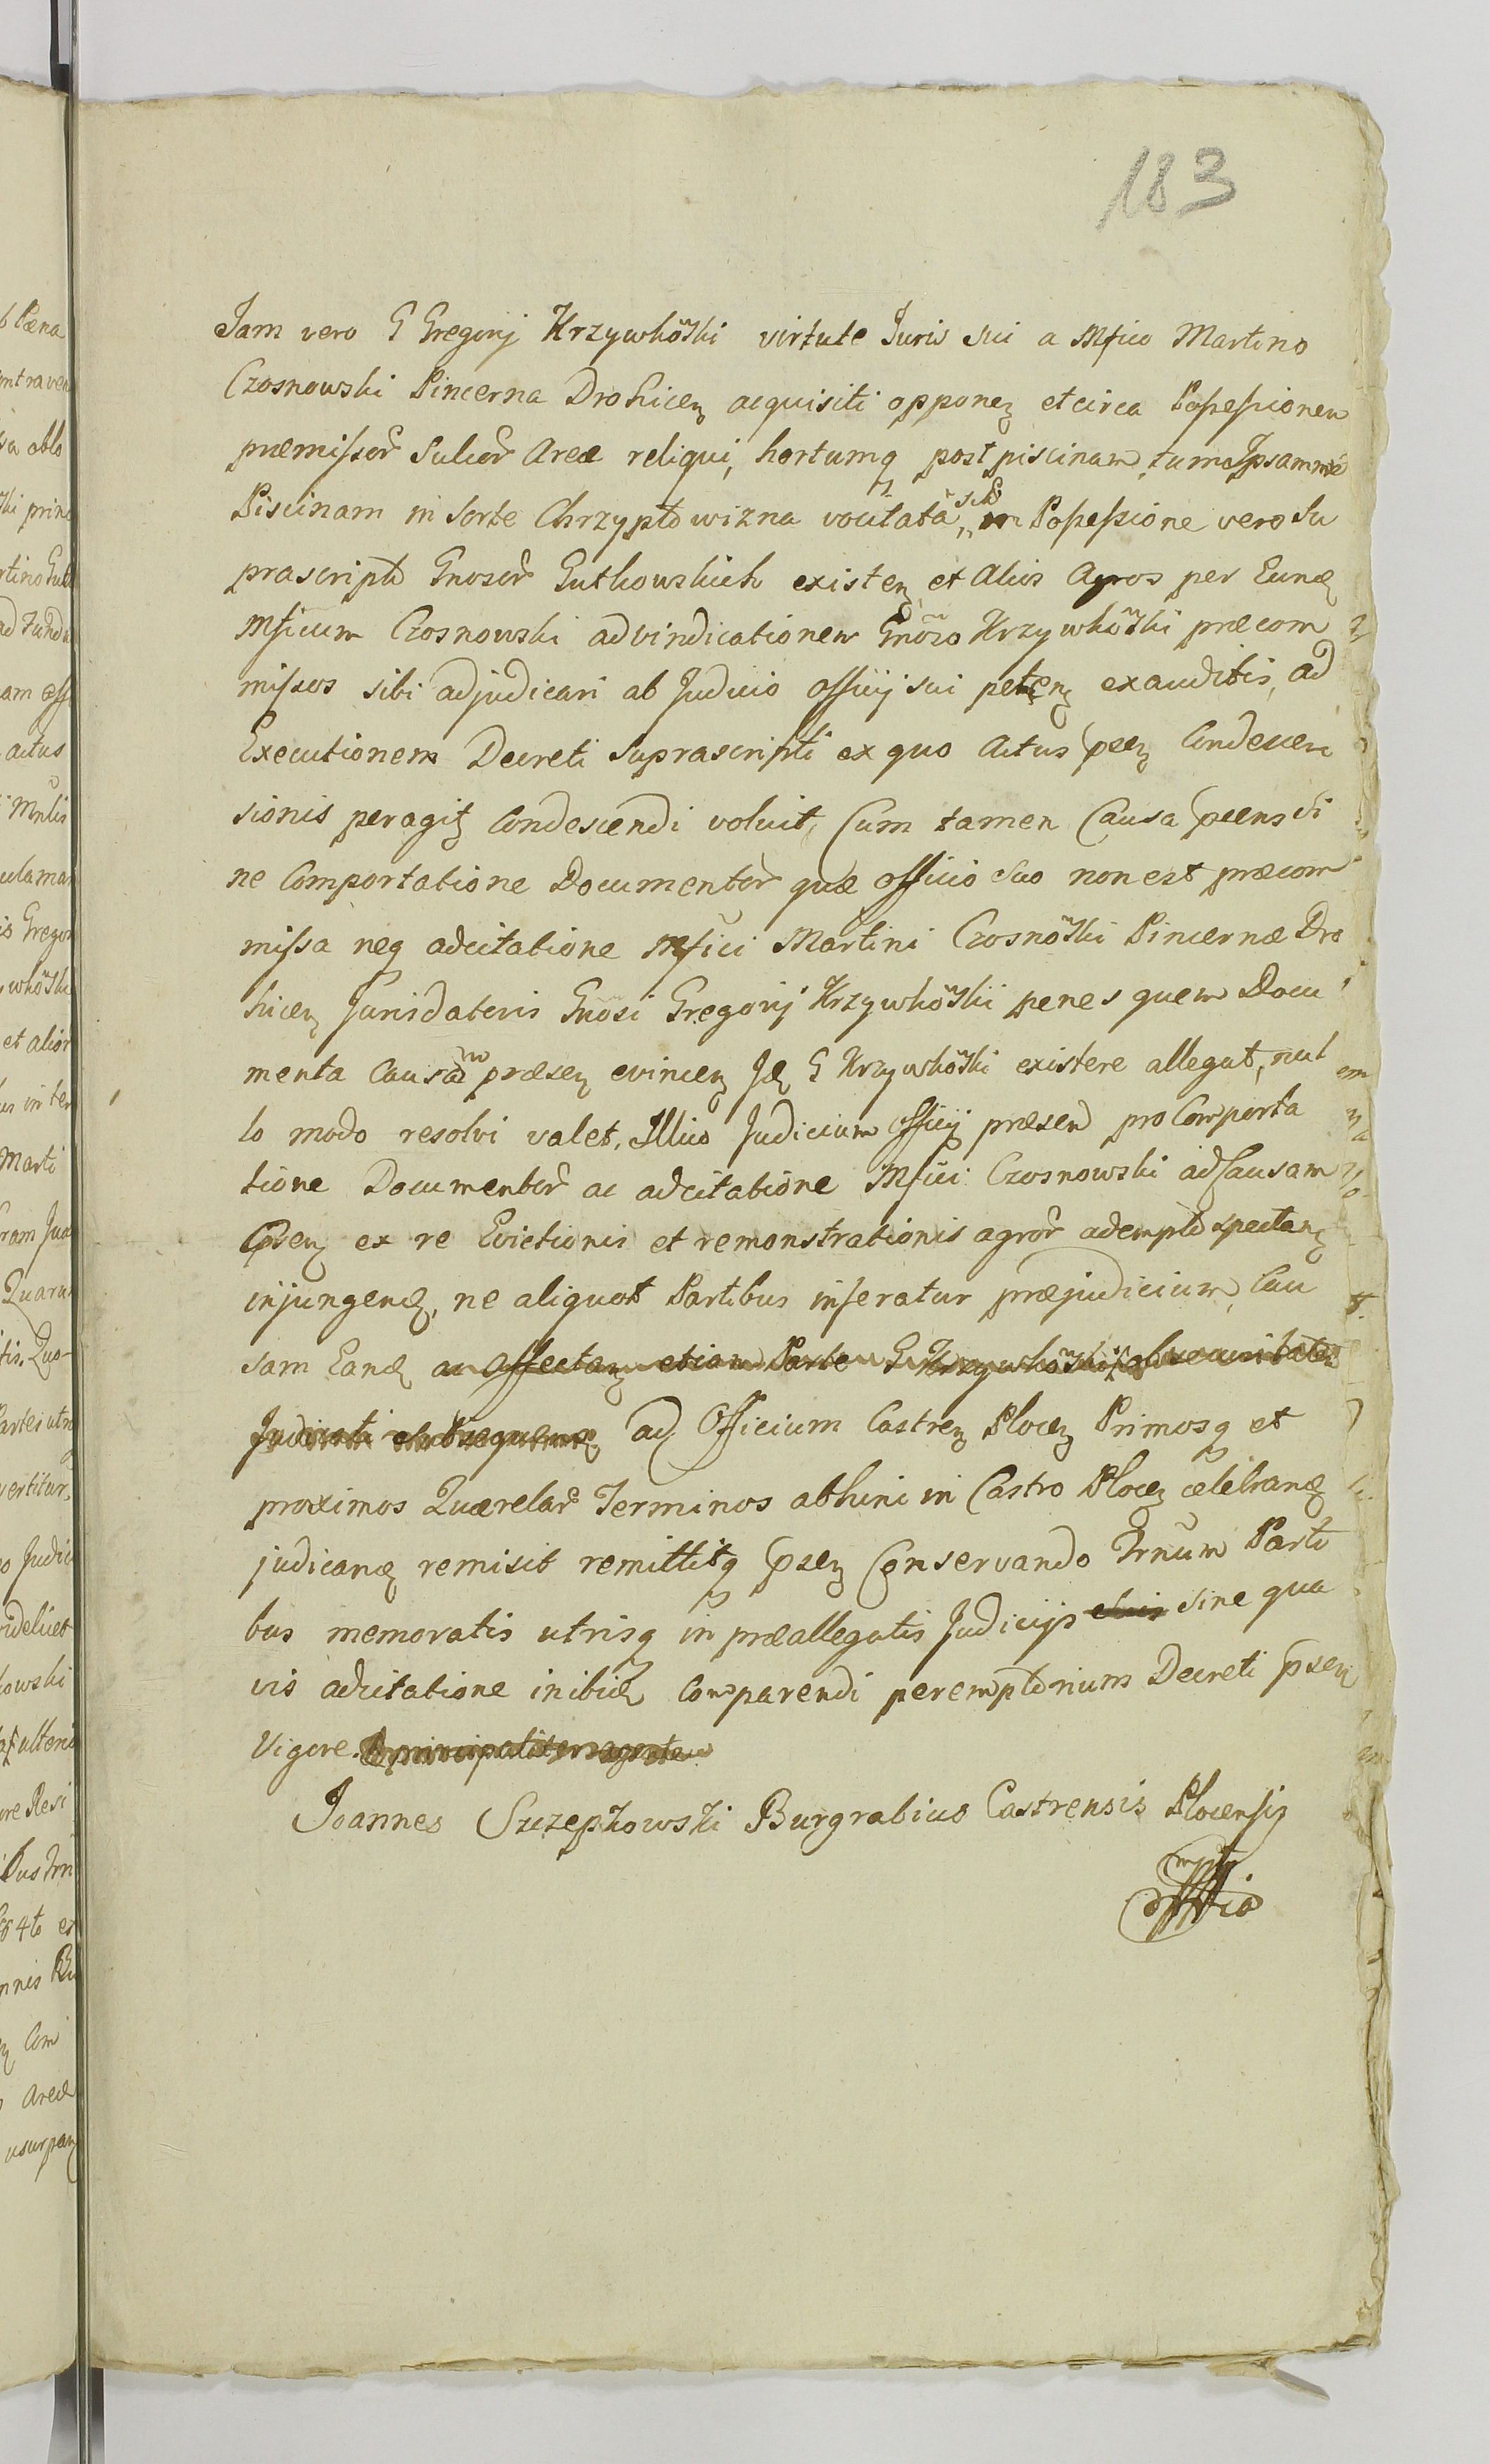 183
Jam vero G Gregorij Krzywkowski virtute Juris sui a Mfico Martino
Czosnowski Pincerna Drohicen acquisiti opponen et circa Possessionem
præmissor Sulcor Areæ reliqui, hortumq post piscinam, tum Ipsammet
Piscinam in Sorte Chrzypto wizna vocitata, sub Possessione vero Su
prascripto Gnosor Gutkowskich existen et Alios Agros per Eund
Mficum Czosnowski advindicationem Gnoso Krzywkoski præcom
missos sibi adjudicari ab Judicio officij sui peten exauditis, ad
Executionem Decreti Suprascripti ex quo Actus pcen Condescen
sionis peragit Condescendi voluit, Cum tamen Causa pcens si
ne Comportatione Documentor quæ officio suo non est præcom
missa neq adcitatione Mfici Martini Czosnoski Pincernæ Dro
hicen Jurisdatoris Gnosi Gregorij Krzywkoskii penes quem Docu
menta Causam præsen evincen Id G Krzywkoski existere allegat, nul
lo modo resolvi valet, Illico Judicium officij præsen pro Comporta
tione Documentor ac adcitatione Mfici Czosnowski ad Causam
Psen ex re Evictionis et remonstrationis agror adempto spectan
injungend, ne aliquot Partibus inferatur præjudicium, Cau
sam Eand ac affectan etiam Parte G Krzywkoski
Judicati ad Officium Castren Plocen Primosq et
proximos Quærelar Terminos abhinc in Castro Plocen celebrand
judicand remisit remittitq psen Conservando Trnum Parti
bus memoratis utrisq in præallegatis Judicijs suis sine qua
vis adcitatione inibid Comparendi peremptorium Decreti psen
Vigore. principaliter agente
Joannes Szczepkowski Burgrabius Castrensis Plocensis
mpp